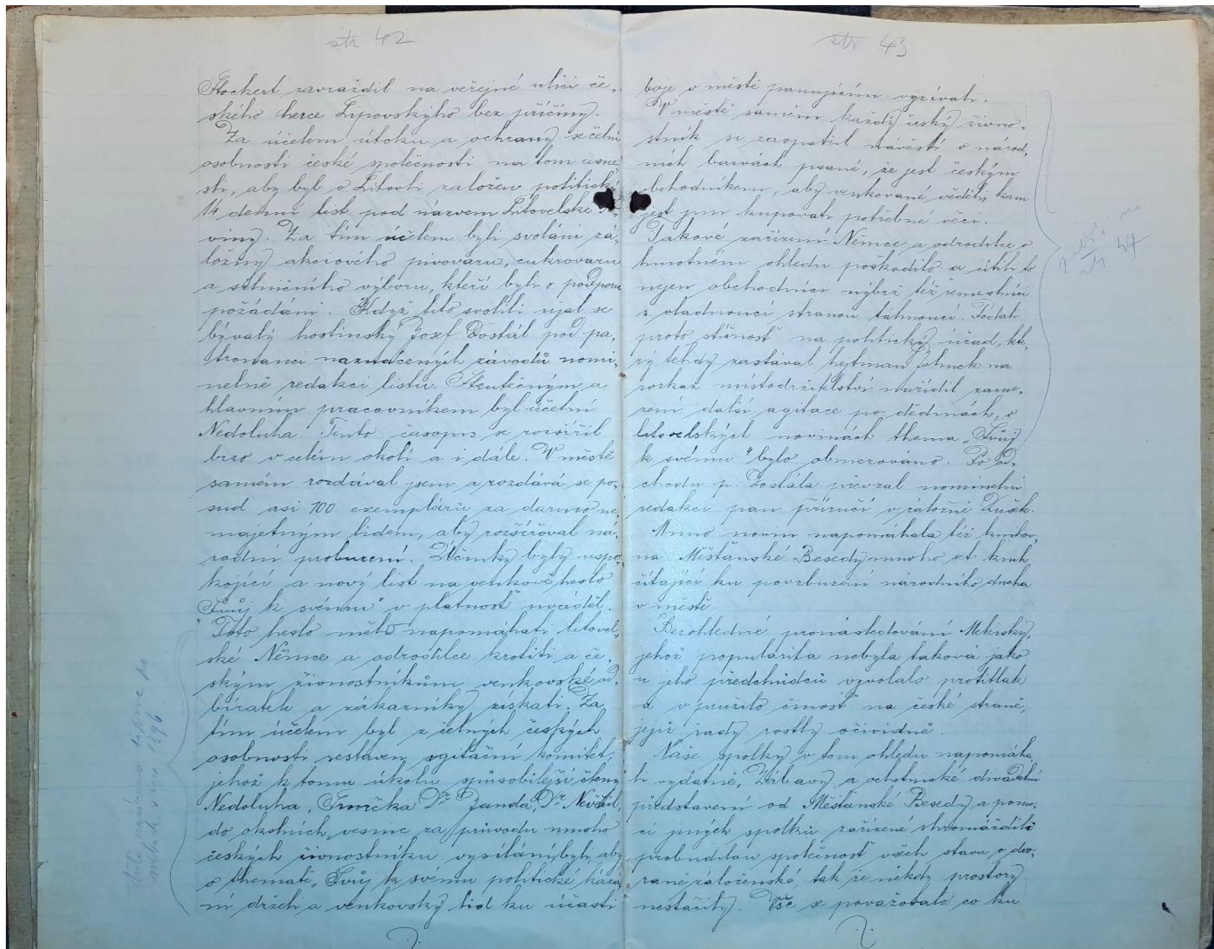 str 42
Stockert zavraždil na veřejné ulici če-
ského herce Lipovského bez příčiny.
Za účelem útoku a ochrany se čelní
osobnosti české společnosti na tom usne-
sli, aby byl v Litovli založen politický
14 denní list pod názvem Litovelské No-
viny. Za tím účelem byli svoláni zá-
ložny akciového pivovaru, cukrovaru
a silničního výboru, kteří byli o podporu
požádáni. Když tito svolili ujal se
bývalý hostinský Josef Dostál pod pa-
tronanci naznačených závodů nomi-
nelně redakci listu. Skutečným a
hlavním pracovníkem byl účetní
Nedoluha. Tento časopis se rozšířil
brzo v celém okolí a i dále. V městě
samém rozdával jsem a rozdává se po-
sud asi 100 exemplárů za darmo ne-
majetným lidem, aby rozšiřoval ná-
rodní probuzení. Účinky byly uspo-
kojící a nový list na venkově heslo
„Svůj k svému" v platnosť uváděl.
Toto heslo mělo napomáhati litovel-
ské Němce a odrodilce krotiti a če-
ským živnostníkům venkovské od-
běratele a zákazníky získati. Za
tím účelem byl z čelných českých
osobností sestaven agitační komitét,
jehož k tomu úkolu spůsobilejší členy
Nedoluha, Smička Dr Janda, Dr
do okolních vesnic za průvodu mnoho
českých živnostníku vysíláni byli, aby
o thematě „Svůj k svému politické káza-
ní drželi a venkovský lid ku účasti
str 43
boje v městě panujícím vyzívati.
V městě samém každý český živno-
stník se zaopatřil návěstí v národ-
ních barvách psané, že jest českým
obchodníkem, aby venkované věděli, kam
jest jim kupovati potřebné věci.
Takové zařízení Němce a odrodilce v
hmotném ohledu poškodilo a
nejen obchodníci nýbrž též řemeslníci
s vladnoucí stranou tahnoucí. Podali
proto stížnosť na politický úřad, kte-
rý tehdy zastával hejtman na
rozkaz místodržitelství nařídil zame-
zení další agitace po dědinách, v
litovelských novinách thema „Svůj
k svému" bylo obmezováno. Po od-
chodu p. Dostála převzal nominelní
redakci pan příručí v záložní Dušek.
Mimo novin napomáhala též knihov-
na Měšťanské Besedy mnoho set knih
čítající ku povzbuzení národního ducha
v městě.
Bezohledné pronásledování
jehož popularita nebyla taková jako
u jeho předchůdců vyvolalo protitlak
a v použilo činnosť na české straně,
jejíž řady rostly očividně.
Naše spolky v tom ohledu napomáha-
li vydatně. Zábavy a ochotnické divadelní
představení od Měšťanské Besedy a pomo-
cí jiných spolků zařízené shromáždilo
probudilou společnosť všech stavu v dvo-
raně záloženské tak že někdy prostory
nestačily. Vše se považovalo co ku